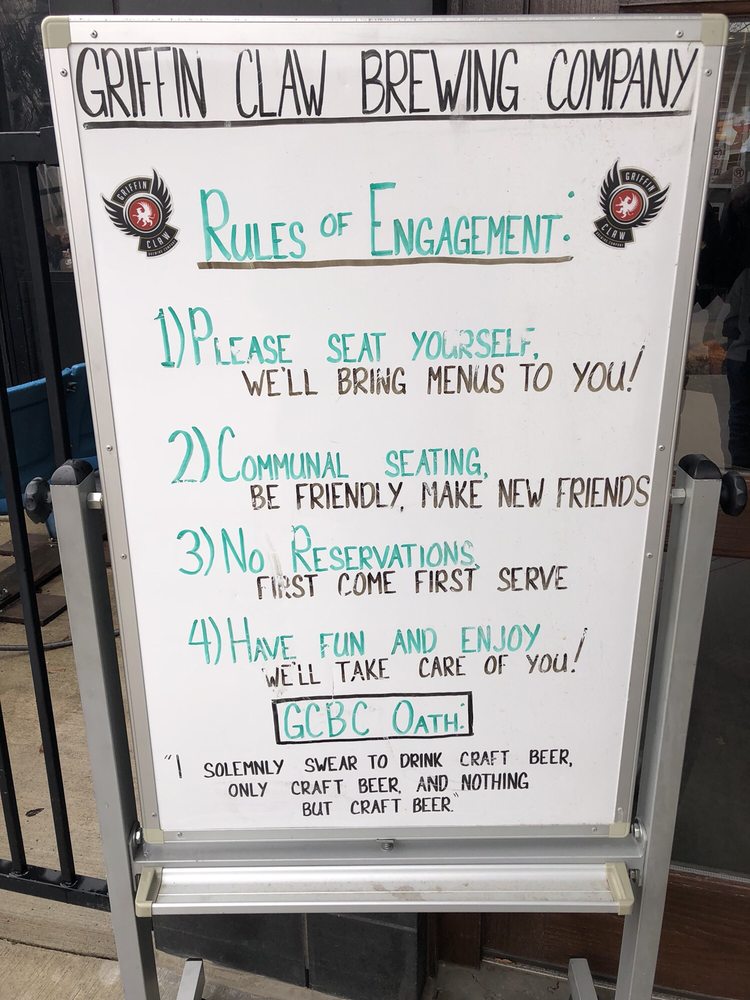 GRIFFIN CLAW BREWING COMPANY
GRIFFIN
CLAW
GRIFFIN
CLAW
RULES OF ENGAGEMENT:
1) PLEASE SEAT YOURSELF,
WE'LL BRING MENUS TO YOU!
2) COMMUNAL SEATING,
BE FRIENDLY, MAKE NEW FRIENDS
3) NO RESERVATIONS,
FIRST COME FIRST SERVE
4) HAVE FUN AND ENJOY
WE'LL TAKE CARE OF YOU!
GCBC OATH:
"I SOLEMNLY SWEAR TO DRINK CRAFT BEER,
ONLY CRAFT BEER, AND NOTHING
BUT CRAFT BEER."